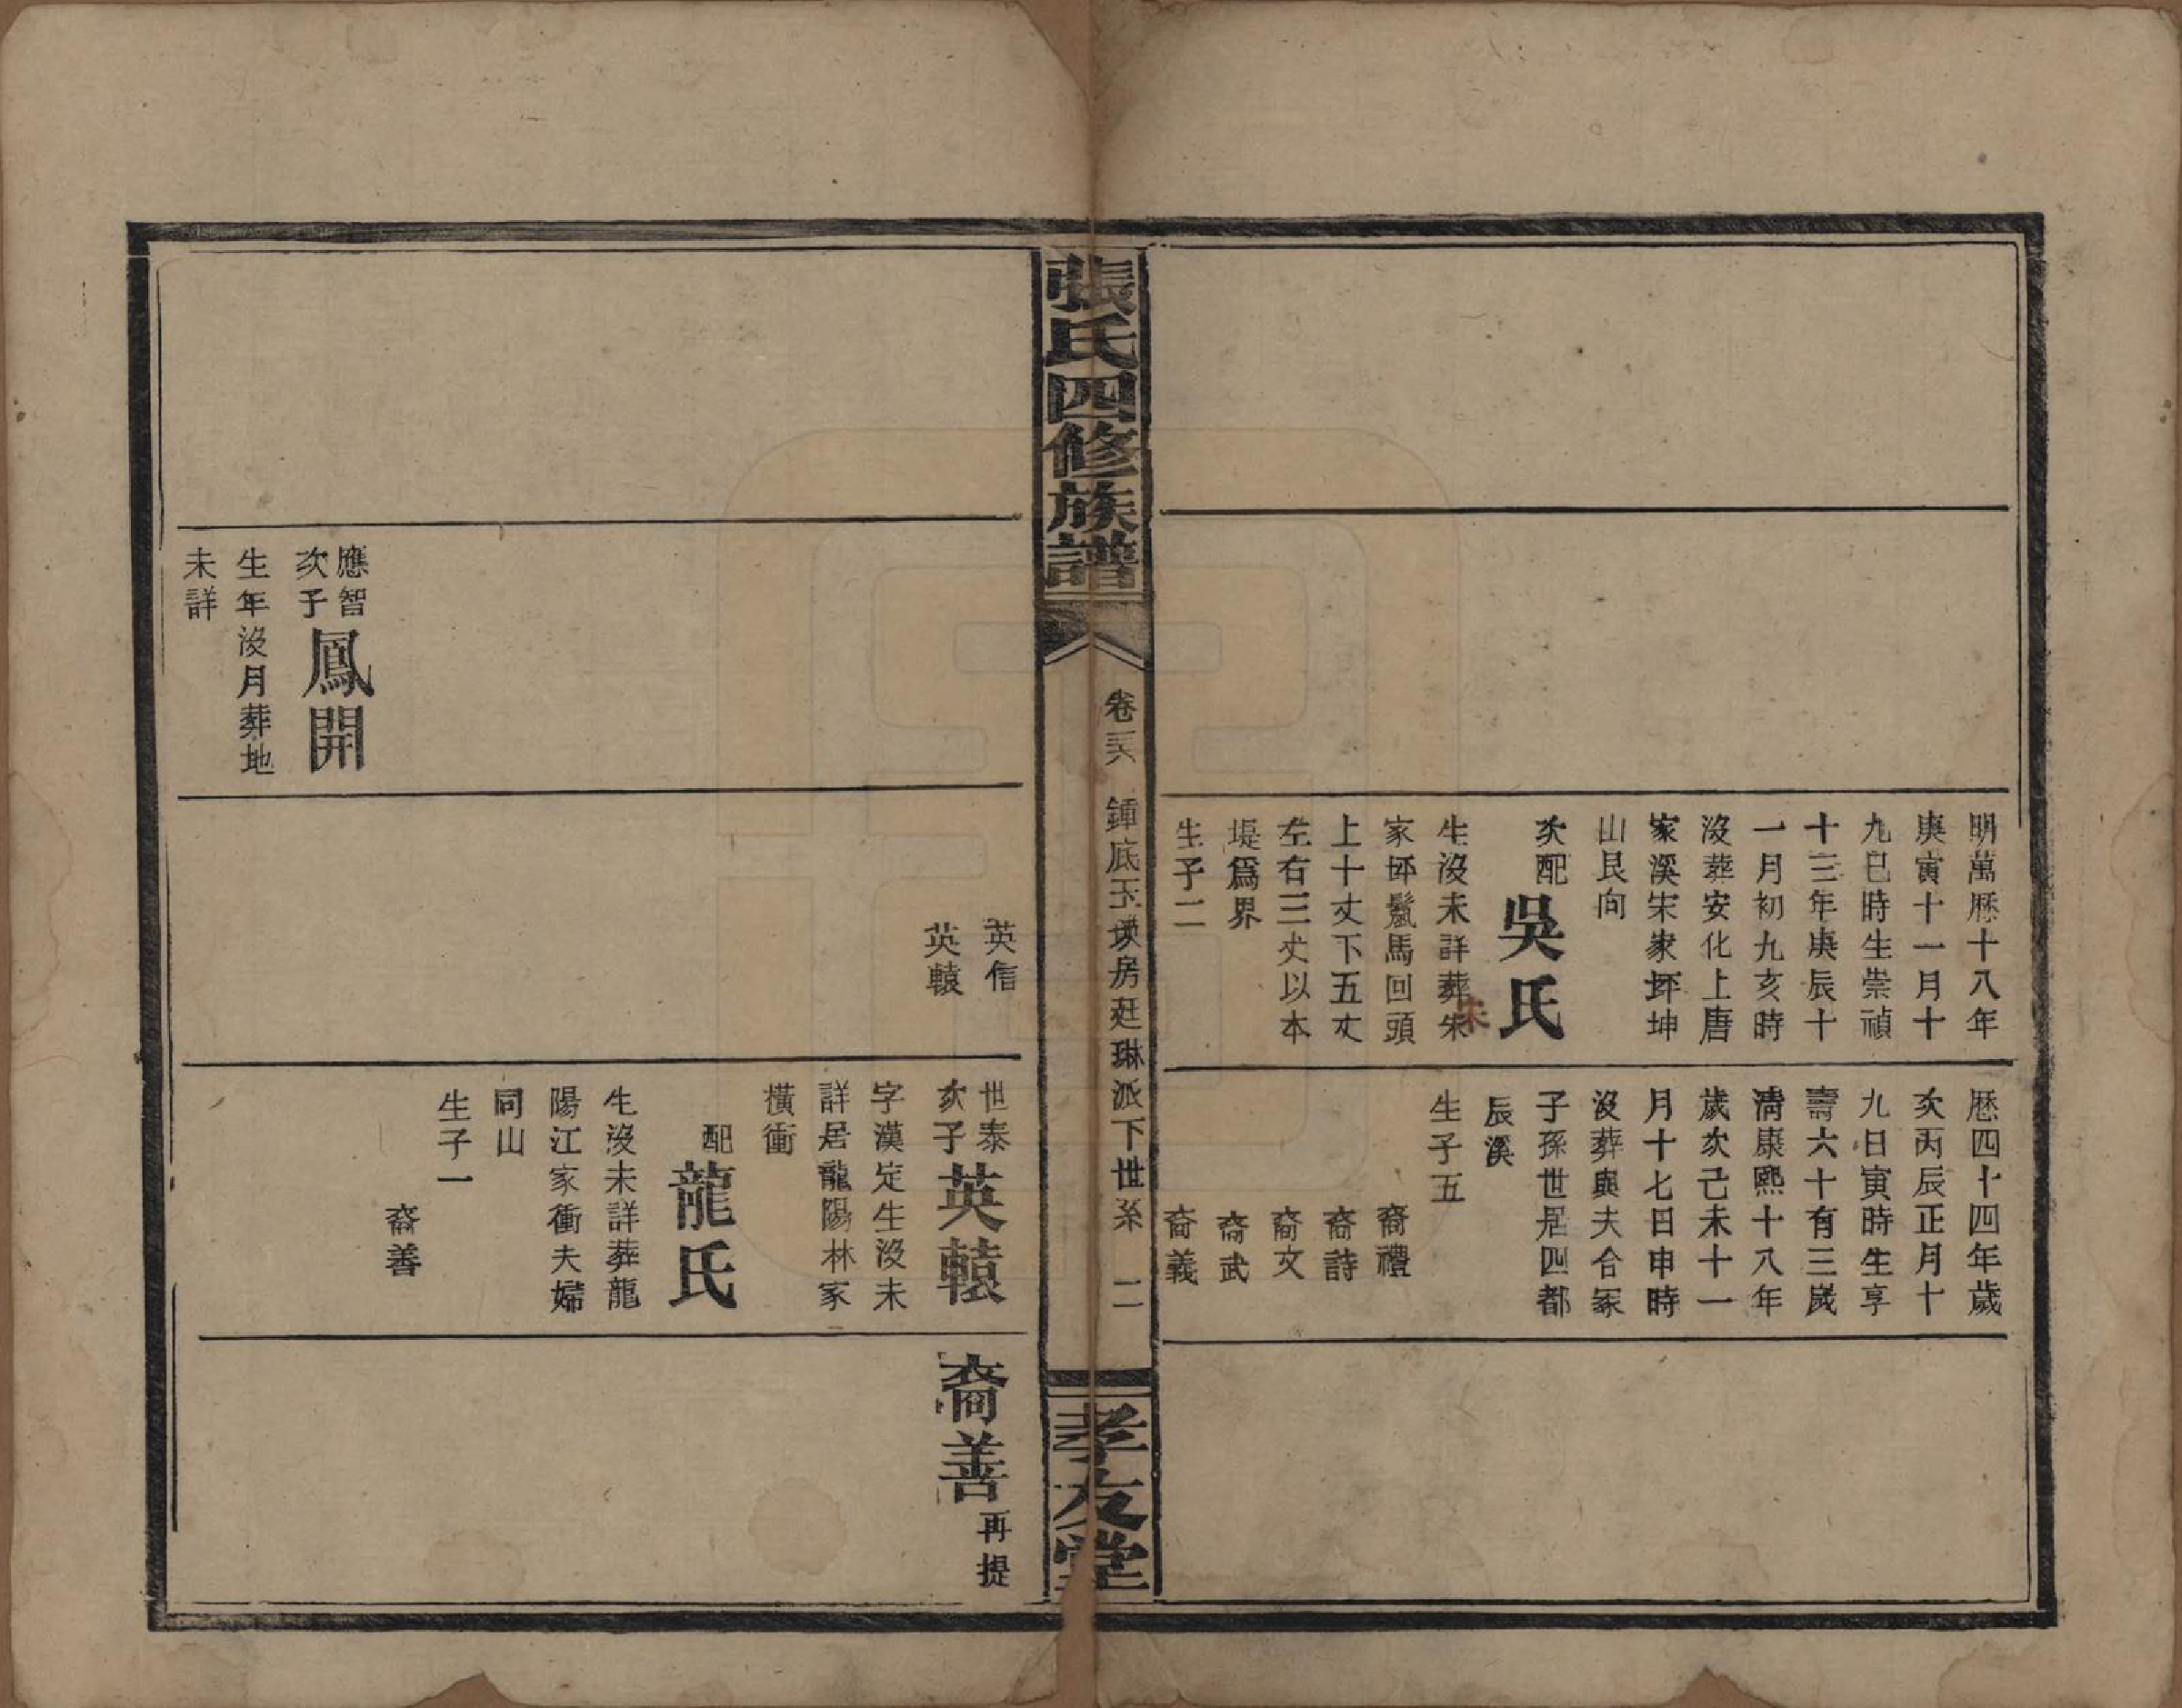 明萬厯十八年
庚寅十一月十
九巳時生崇禎
十三年庚辰十
一月初九亥時
沒葬安化上唐
家溪宋家坪坤
山艮向
次配
吳氏
生沒未詳葬朱
家坪鬣馬回頭
上十丈下五丈
左右三丈以本
堤爲界
生子二
厯四十四年歲
次丙辰正月十
九日寅時生享
壽六十有三歲
淸康熙十八年
歲次己未十一
月十七日申時
沒葬與夫合冢
子孫世居四都
辰溪
生子五
裔禮
裔詩
裔文
裔武
裔義
張氏四修族譜
卷
鍾底玉房廷琳派下世系
二
孝友堂
應智
次子
鳳開
生年沒月葬地
未詳
英信
英轅
世泰
次子
英轅
字漢定生沒未
詳居龍陽林家
橫衝
配
龍氏
生沒未詳葬龍
陽江家衝夫婦
同山
生子一
裔善
裔善
再提